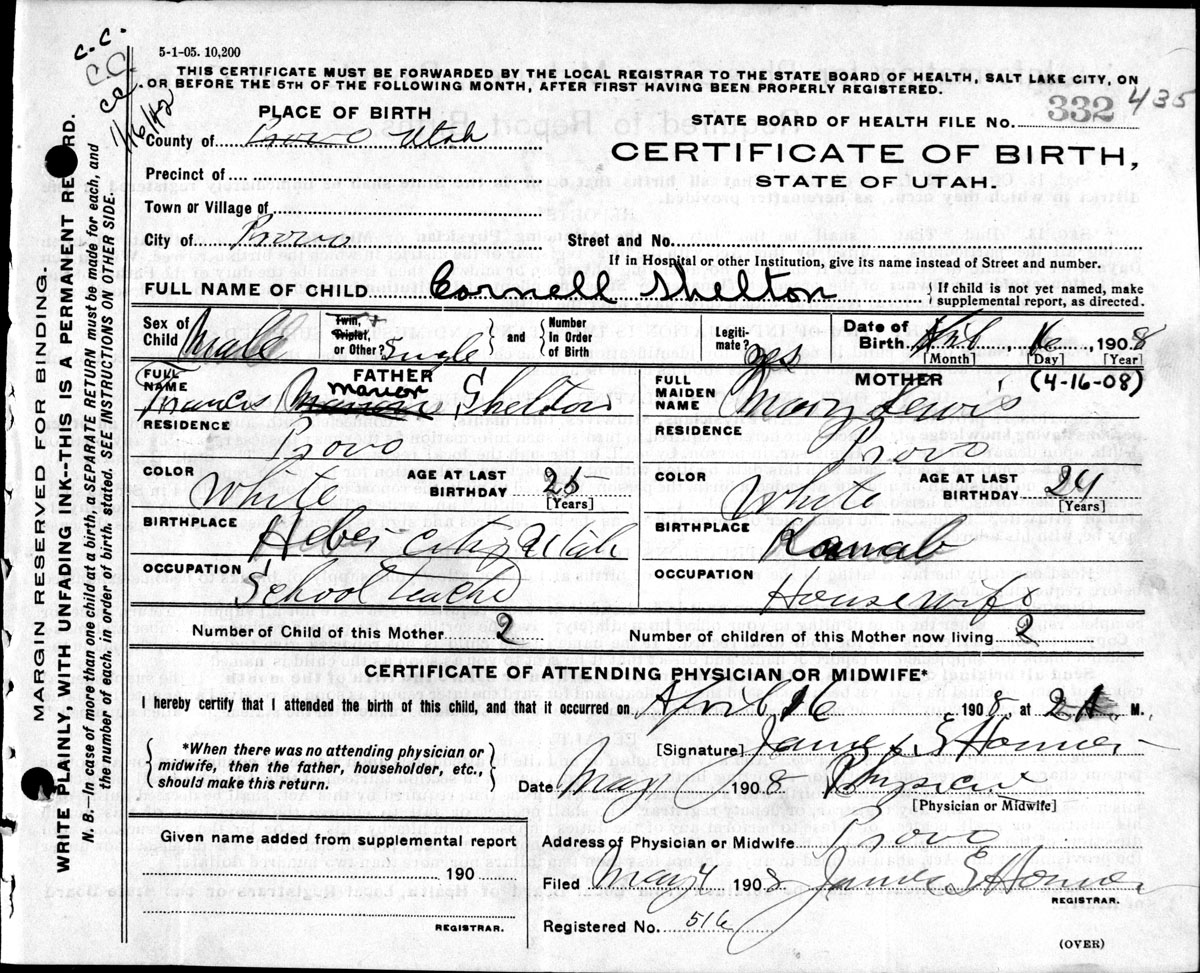 5-1-05. 10,200
THIS CERTIFICATE MUST BE FORWARDED BY THE LOCAL REGISTRAR TO THE STATE BOARD OF HEALTH, SALT LAKE CITY, ON
OR BEFORE THE 5TH OF THE FOLLOWING MONTH, AFTER FIRST HAVING BEEN PROPERLY REGISTERED.
C.C.
C.C.
C.C.
1/6/42
MARGIN RESERVED FOR BINDING.
WRITE PLAINLY, WITH UNFADING INK--THIS IS A PERMANENT RECORD.
N. B.—In case of more than one child at a birth a SEPARATE RETURN must be made for each, and
the number of each, in order of birth, stated. SEE INSTRUCTIONS ON OTHER SIDE.
PLACE OF BIRTH
County of Provo Utah
Precinct of
Town or Village of
City of Provo
STATE BOARD OF HEALTH FILE No. 332 435
CERTIFICATE OF BIRTH,
STATE OF UTAH.
Street and No.
If in Hospital or other Institution, give its name instead of Street and number.
FULL NAME OF CHILD Cornell Shelton
If child is not yet named, make
supplemental report, as directed.
Sex of Child Male
Twin, Triplet, or Other? Single
and
Number In Order of Birth
Legitimate? yes
Date of Birth. April 16 1908
[Month] [Day] [Year]
(4-16-08)
FATHER
FULL NAME Francis Marion Shelton
RESIDENCE Provo
COLOR White
AGE AT LAST BIRTHDAY 26 [Years]
BIRTHPLACE Heber City Utah
OCCUPATION School teacher
MOTHER
FULL MAIDEN NAME Mary Lewis
RESIDENCE Provo
COLOR White
AGE AT LAST BIRTHDAY 24 [Years]
BIRTHPLACE Kanab
OCCUPATION Housewife
Number of Child of this Mother 2
Number of children of this Mother now living 2
CERTIFICATE OF ATTENDING PHYSICIAN OR MIDWIFE*
I hereby certify that I attended the birth of this child, and that it occurred on April 16 1908, at 2 A. M.
*When there was no attending physician or
midwife, then the father, householder, etc.,
should make this return.
[Signature] James E
Date May 1908 Physician
[Physician or Midwife]
Given name added from supplemental report
190
REGISTRAR.
Address of Physician or Midwife Provo
Filed May 4 1908 James E
REGISTRAR.
Registered No. 516
(OVER)